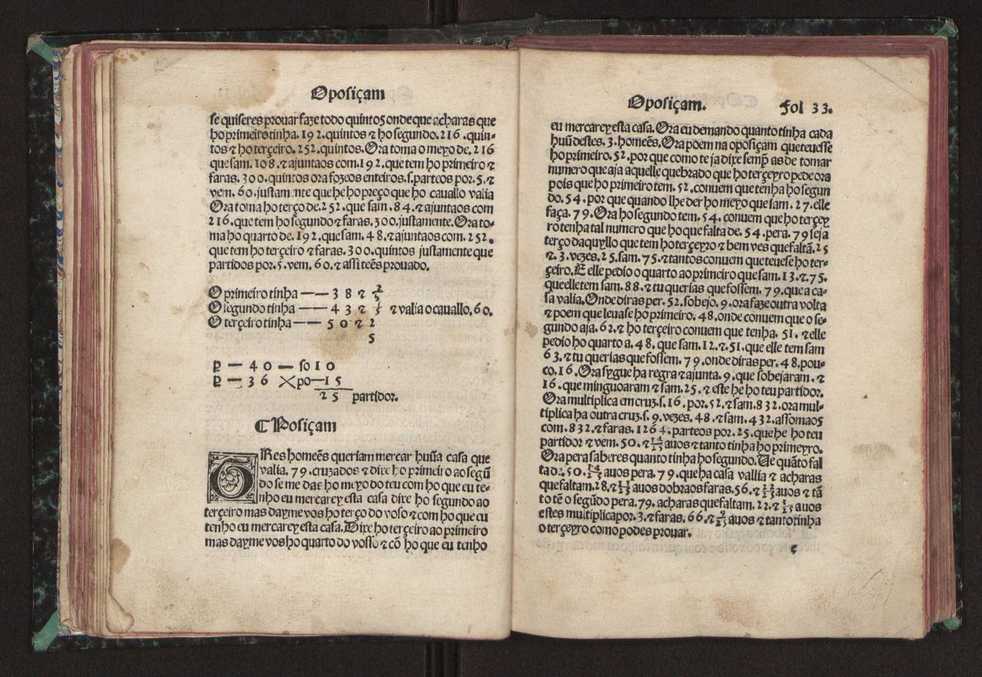 Oposiçam
se quiseres prouar faze todo quintos onde que acharas que
ho primeiro tinha.192.quintos ⁊ ho segundo.216.quin-
tos ⁊ ho terçeiro.252.quintos.Ora toma o meyo de.216
que sam.108.⁊ ajuntaos com.192.que tem ho primeiro ⁊
faras.300.quintos ora fozeos enteiros.s.parteos por.5.⁊
vem.60.justamente que he ho preço que ho cauallo valia
Ora toma ho terço de.252.que sam.84.⁊ ajuntaos com
216.que tem ho segundo ⁊ faras.300.justamente.Ora to-
ma ho quarto de.192.que sam.48.⁊ ajuntaos com.252.
que tem ho terçeiro ⁊ faras.300.quintos justamente que
partidos por.5.vem.60.⁊ assi teẽs prouado.
O primeiro tinha — — 3 8 ⁊ 2/5
O segundo tinha — — 4 3 ⁊ 1/5 ⁊ valia o cauallo.60.
O terçeiro tinha — — 5 0 ⁊ 2
5
p — 4 0 — so 1 0
p — 3 6 X po — 1 5
2 5 partidor.
¶ Posiçam
TRes homeẽs queriam mercar huũa casa que
valia.79.cruzados ⁊ dixe ho primeiro ao segũ
do se me dae ho meyo do teu com ho que eu te-
nho eu mercarey esta casa dixe ho segundo ao
terçeiro mas dayme vos ho terço do voso ⁊ com ho que eu
tenho eu mercarey esta casa.Dixe ho terçeiro ao primeiro
mas dayme vos ho quarto do vosso ⁊ cõ ho que eu tenho
Oposiçam. Fol 33.
eu mercarey esta casa.Ora eu demando quanto tinha cada
huũ destes.3.homeẽs.Ora poem na oposiçam que teuesse
ho primeiro.52.por que como te ja dixe semp̃ as de tomar
numero que aja aquelle quebrado que ho terçeyro pede ora
pois que ho primeiro tem.52.conuem que tenha ho segun
do.54.por que quando lhe der ho meyo que sam.27.elle
faça.79.Ora ho segundo tem.54.conuem que ho terçey
ro tenha tal numero que ho que falta de.54.pera.79 seja
terço daquyllo que tem ho terçeyro ⁊ bem ves que faltã.25
⁊.3.vezes.25.sam.75.⁊ tantos conuem que teuese ho ter-
çeiro.E elle pedio o quarto ao primeiro que sam.13.⁊.75.
que elle tem sam.88.⁊ tu querias que fossem.79.que a ca-
sa valia.Onde diras per.52.sobejo.9.ora faze outra volta
⁊ poem que leuase ho primeiro.48.onde conuem que o se-
gundo aja.62.⁊ ho terçeiro conuem que tenha.51.⁊ elle
pedio ho quarto a.48.que sam.12.⁊.51.que elle tem sam
63.⁊ tu querias que fossem.79.onde diras per.48.pou-
co.16.Ora sygue ha regra ⁊ ajunta.9.que sobejaram.⁊
16.que minguoaram ⁊ sam.25.⁊ este he ho teu partidor.
Ora multiplica em cruz.s.16.por.52.⁊ sam.832.ora mul-
tiplica ha outra cruz.s.9.vezes.48.⁊ sam.432.assomaos
com.832.⁊ faras.1264.parteos por.25.que he ho teu
partidor ⁊ vem.50.⁊ 14/25 auos ⁊ tanto tinha ho primeiro.
Ora pera saberes quanto tinha ho segundo.Ue quãto fal
ta d̃.50.14/25 auos pera.79.que ha casa vallia ⁊ acharas
que faltam.28.⁊ 11/25 auos dobraos faras.56.⁊ 22/25 auos ⁊ tã
to tẽ o segũdo pera.79.acharas que faltam.22.⁊ 3/25 auos
estes multiplica por.3.⁊ faras.66.⁊ 9/25 auos ⁊ tanto tinha
o terçeyro como podes prouar.